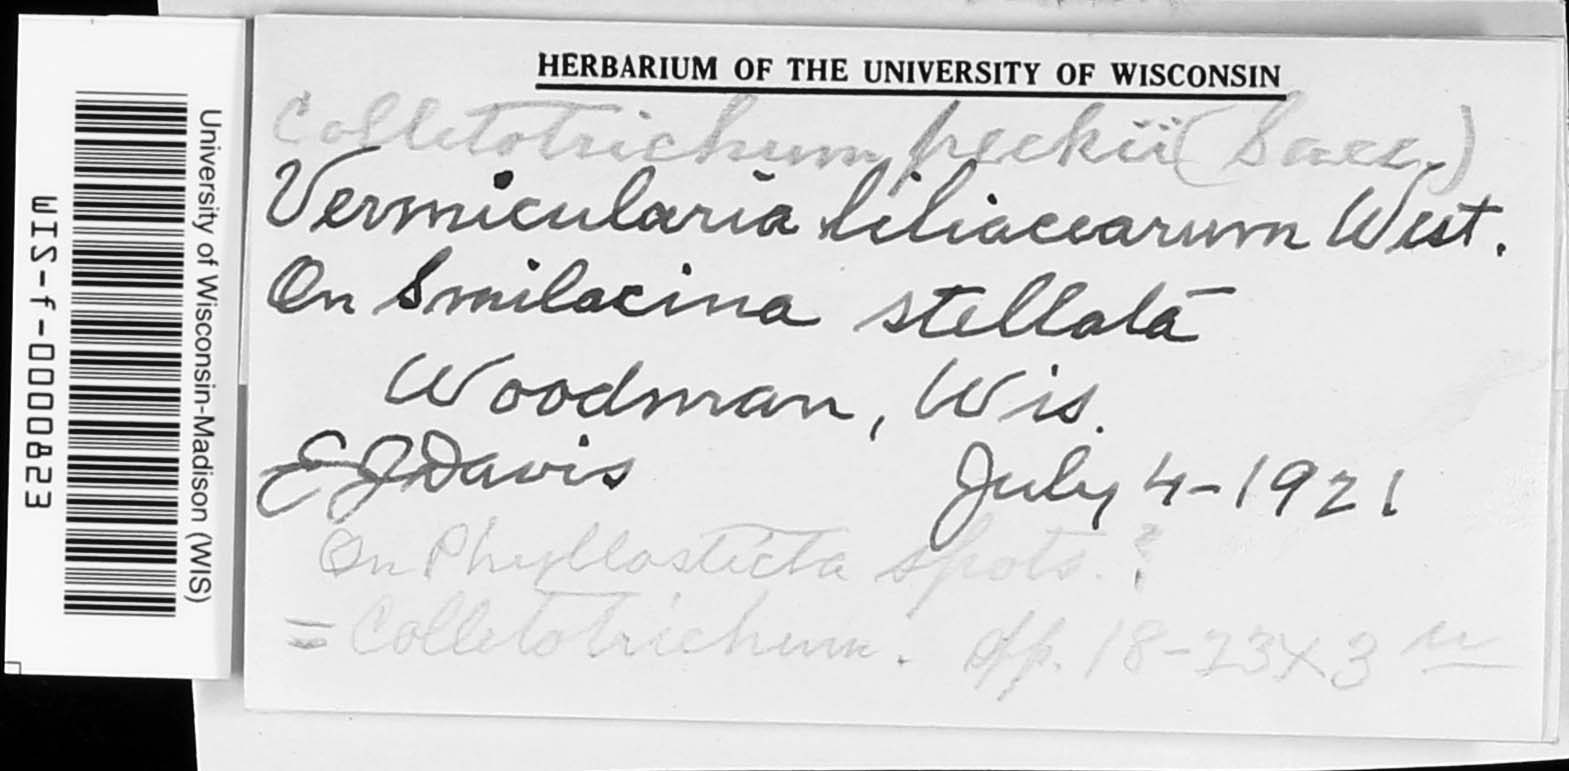 HERBARIUM OF THE UNIVERSITY OF WISCONSIN
Colletotrichum peckii (Sacc.)
Vermicularia liliacearum West.
On Smilacina stellata
Woodman, Wis.
E J Davis July 4-1921
On Phyllosticta spots.?
= Colletotrichum. Sp. 18-23X3 u
University of Wisconsin-Madison (WIS)
WIS-f-0000823